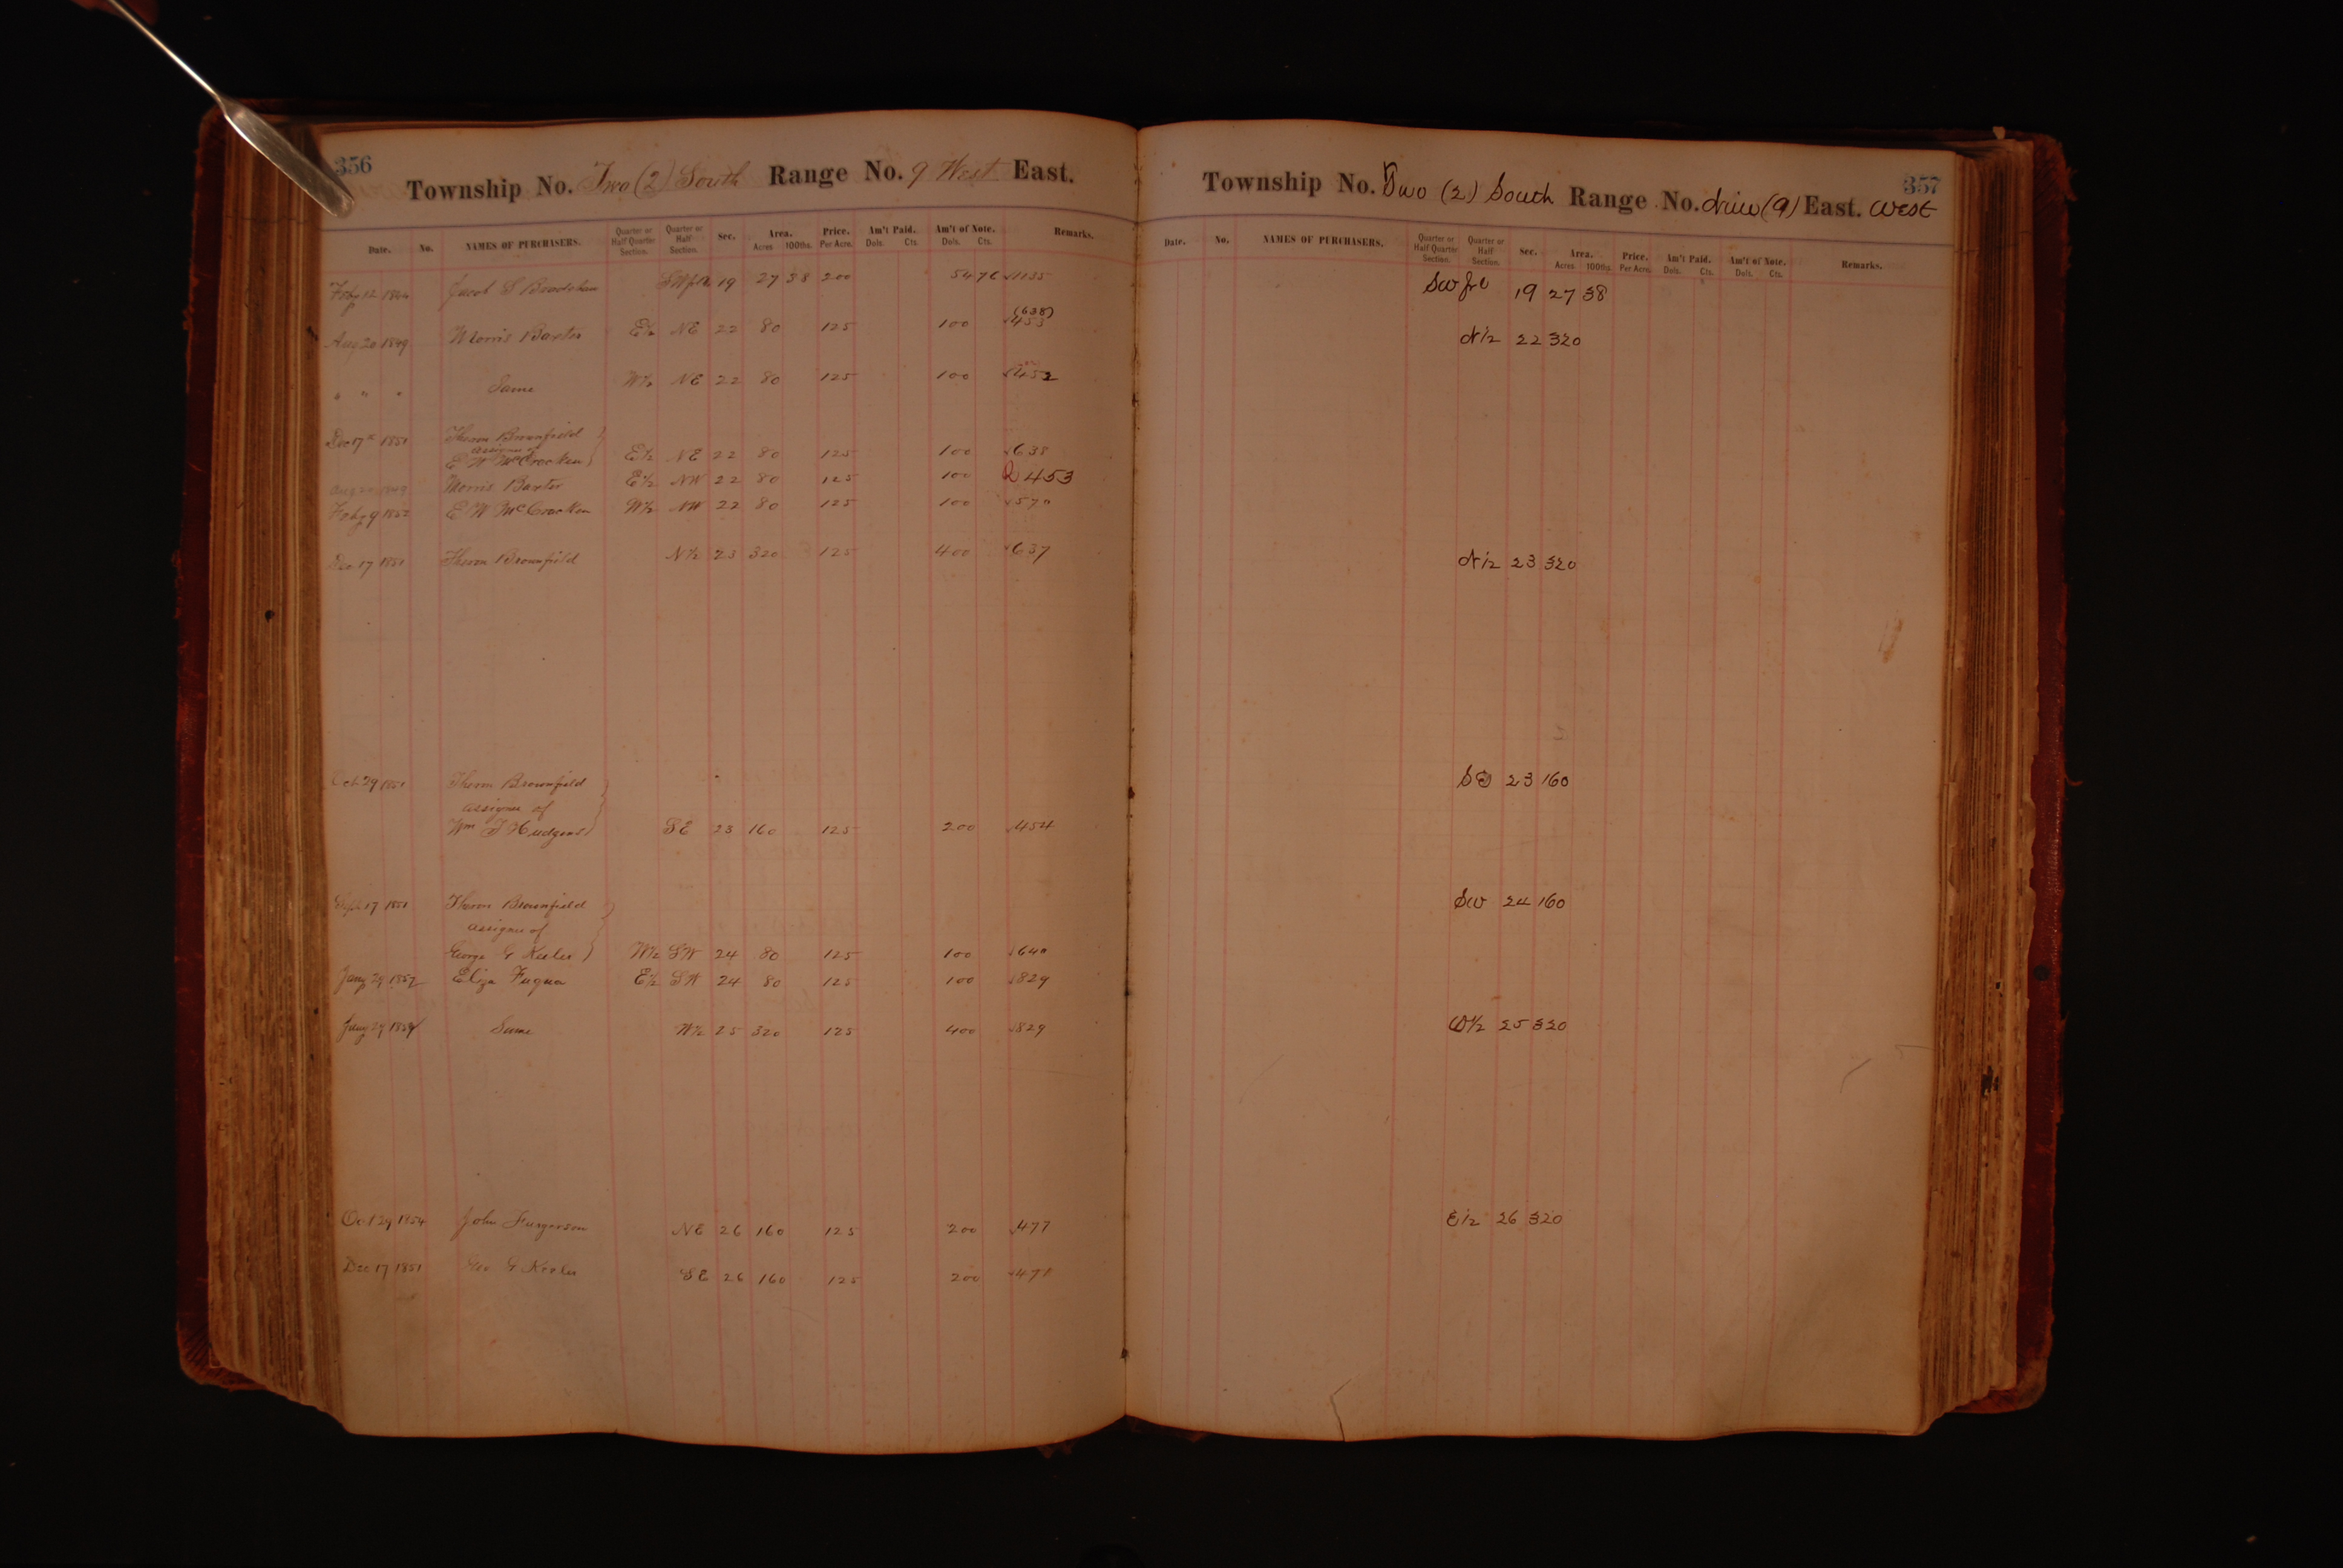 356
Township No. Two (2) South Range No. 9 West East.
Date. No. NAMES OF PURCHASERS. Quarter or Half Quarter Section. Quarter or Half Section. Sec. Area. Acres 100ths. Price. Per Acre. Am't Paid. Dols. Cts. Am't of Note. Dols. Cts. Remarks.
Feby 12 1844 Jacob S Bradshaw SW frl 19 27 38 200 54 76 √1135
(638)
Aug 20 1849 Morris Baxter E½ NE 22 80 125 100 √453
" " " Same W½ NE 22 80 125 100 √452
Dec 17 1851 Theron Brownfield
assignee of
E W McCracken E½ NE 22 80 125 100 √638
Aug 20 1849 Morris Baxter E½ NW 22 80 125 100 453
Feby 9 1852 E W McCracken W½ NW 22 80 125 100 √570
Dec 17 1851 Theron Brownfield N½ 23 320 125 400 √637
Oct 29 1851 Theron Brownfield
assignee of
Wm T Hudgens SE 23 160 125 200 √454
17 1851 Theron Brownfield
assignee of
George G Keeler W½ SW 24 80 125 100 √640
Jany 29 1857 Eliza Fuqua E½ SW 24 80 125 100 √829
Jany 29 Same W½ 25 320 125 400 √829
Oct 29 1854 John Furgerson NE 26 160 125 200 √477
Dec 17 1851 Geo G Keeler SE 26 160 125 200
357
Township No. Two (2) South Range No. Nine (9) East. West
Date. No. NAMES OF PURCHASERS. Quarter or Half Quarter Section. Quarter or Half Section. Sec. Area. Acres 100ths. Price. Per Acre. Am't Paid. Dols. Cts. Am't of Note. Dols. Cts. Remarks.
SW frl 19 27 38
N½ 22 320
N½ 23 320
SE 23 160
SW 24 160
W½ 25 320
E½ 26 320